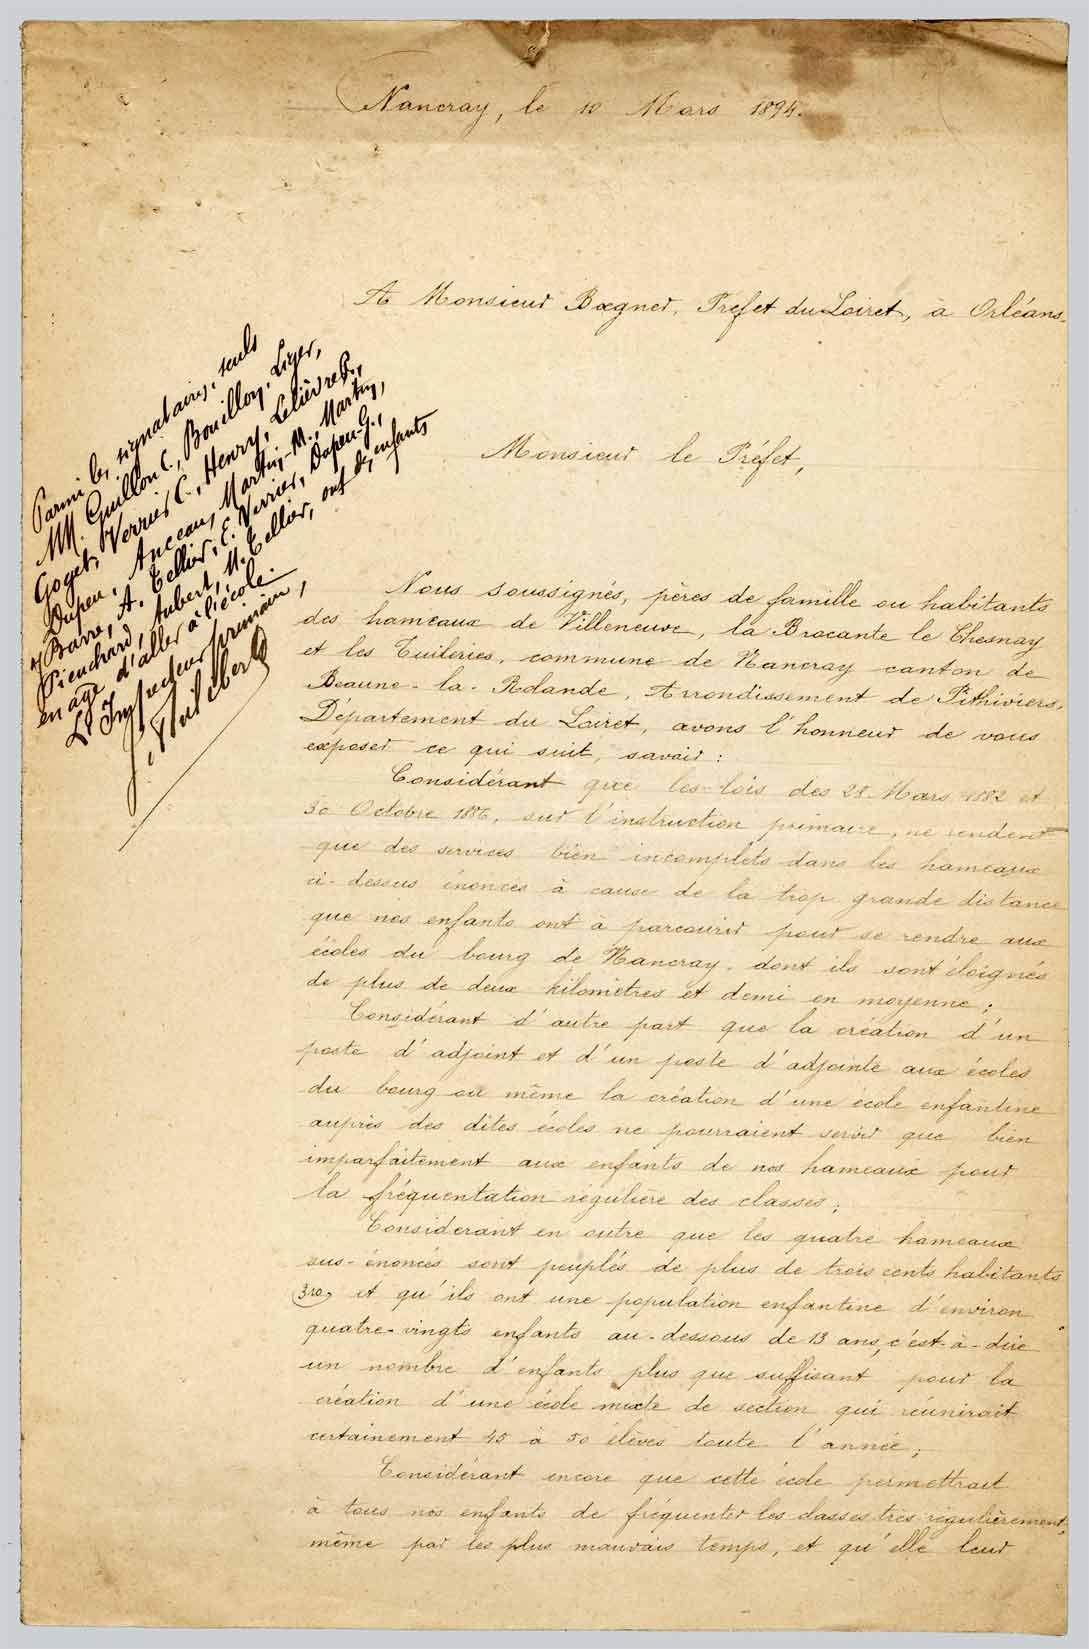 Nancray, le 10 Mars 1894.
A Monsieur Bœgner, Préfet du Loiret, à Orléans.
Parmi les signataires, seuls
MM. Guillon C., Bouillon, Liger,
Goget, Verrier C., Henry, Lelièvre P.,
Dupeu, Anceau, Martin M., Martin,
Barre, A. Tellier, E. Verrier, Dupeu G.,
Pieuchard, Aubert, M. Tellier, ont des enfants
en âge d'aller à l'école.
L'Inspecteur primaire,
Monsieur le Préfet,
Nous soussignés, pères de famille ou habitants
des hameaux de Villeneuve, la Brocante le Chesnay
et les Tuileries, commune de Nancray canton de
Beaune-la-Rolande, Arrondissement de Pithiviers,
Département du Loiret, avons l'honneur de vous
exposer ce qui suit, savoir :
Considérant que les lois des 28 Mars 1882 et
30 Octobre 1886, sur l'instruction primaire, ne rendent
que des services bien incomplets dans les hameaux
ci-dessus énoncés à cause de la trop grande distance
que nos enfants ont à parcourir pour se rendre aux
écoles du bourg de Nancray, dont ils sont éloignés
de plus de deux kilomètres et demi en moyenne ;
Considérant d'autre part que la création d'un
poste d'adjoint et d'un poste d'adjointe aux écoles
du bourg ou même la création d'une école enfantine
auprès des dites écoles ne pourraient servir que bien
imparfaitement aux enfants de nos hameaux pour
la fréquentation régulière des classes ;
Considérant en outre que les quatre hameaux
sus-énoncés sont peuplés de plus de trois cents habitants
(310) et qu'ils ont une population enfantine d'environ
quatre-vingts enfants au-dessous de 13 ans, c'est-à-dire
un nombre d'enfants plus que suffisant pour la
création d'une école mixte de section qui réunirait
certainement 45 à 50 élèves toute l'année ;
Considérant encore que cette école permettrait
à tous nos enfants de fréquenter les classes très régulièrement,
même par les plus mauvais temps, et qu'elle leur